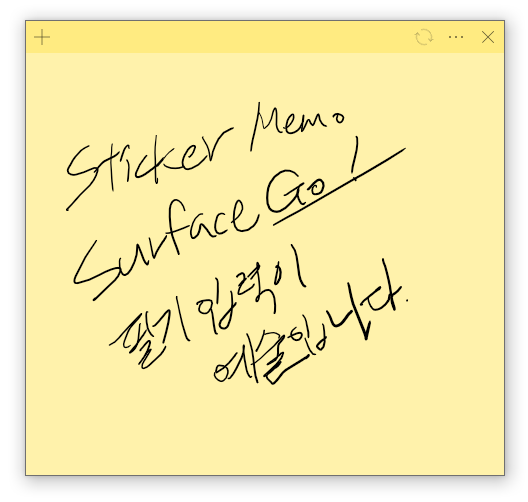 Sticker Memo
Surface Go!
필기 입력이
예술입니다.